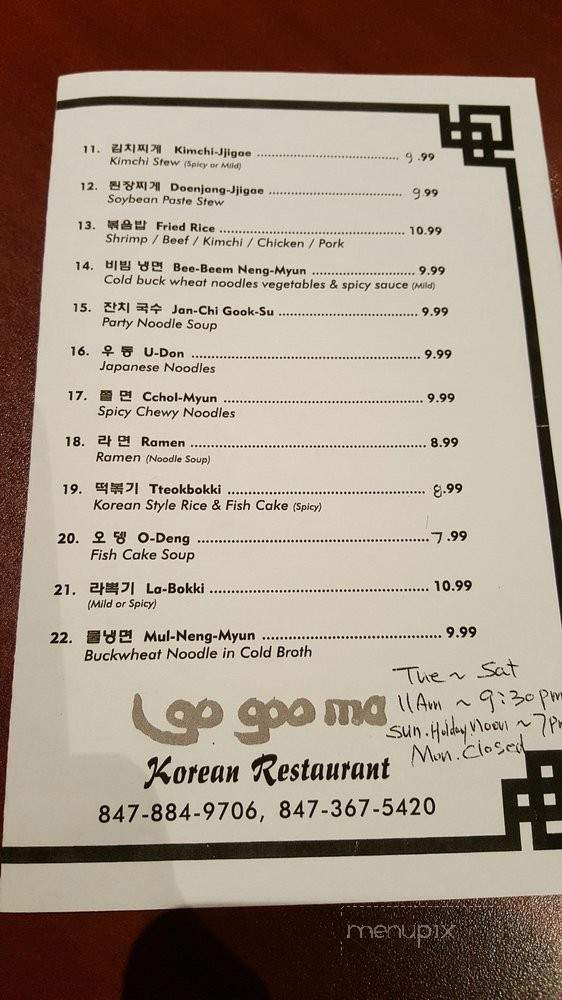 11. 김치찌게 Kimchi-Jjigae ........ 9.99
Kimchi Stew (Spicy or Mild)
12. 된장찌게 Doenjang-Jjigae ........ 9.99
Soybean Paste Stew
13. 볶음밥 Fried Rice ........ 10.99
Shrimp / Beef / Kimchi / Chicken / Pork
14. 비빔 냉면 Bee-Beem Neng-Myun ........ 9.99
Cold buck wheat noodles vegetables & spicy sauce (Mild)
15. 잔치 국수 Jan-Chi Gook-Su ........ 9.99
Party Noodle Soup
16. 우 동 U-Don ........ 9.99
Japanese Noodles
17. 쫄 면 Cchol-Myun ........ 9.99
Spicy Chewy Noodles
18. 라 면 Ramen ........ 8.99
Ramen (Noodle Soup)
19. 떡볶기 Tteokbokki ........ 8.99
Korean Style Rice & Fish Cake (Spicy)
20. 오 뎅 O-Deng ........ 7.99
Fish Cake Soup
21. 라뽁기 La-Bokki ........ 10.99
(Mild or Spicy)
22. 물냉면 Mul-Neng-Myun ........ 9.99
Buckwheat Noodle in Cold Broth
Tue ~ Sat
11Am ~ 9:30pm
Sun. Holiday Noon ~ 7pm
Mon. Closed
go goo ma
Korean Restaurant
847-884-9706, 847-367-5420
menupix